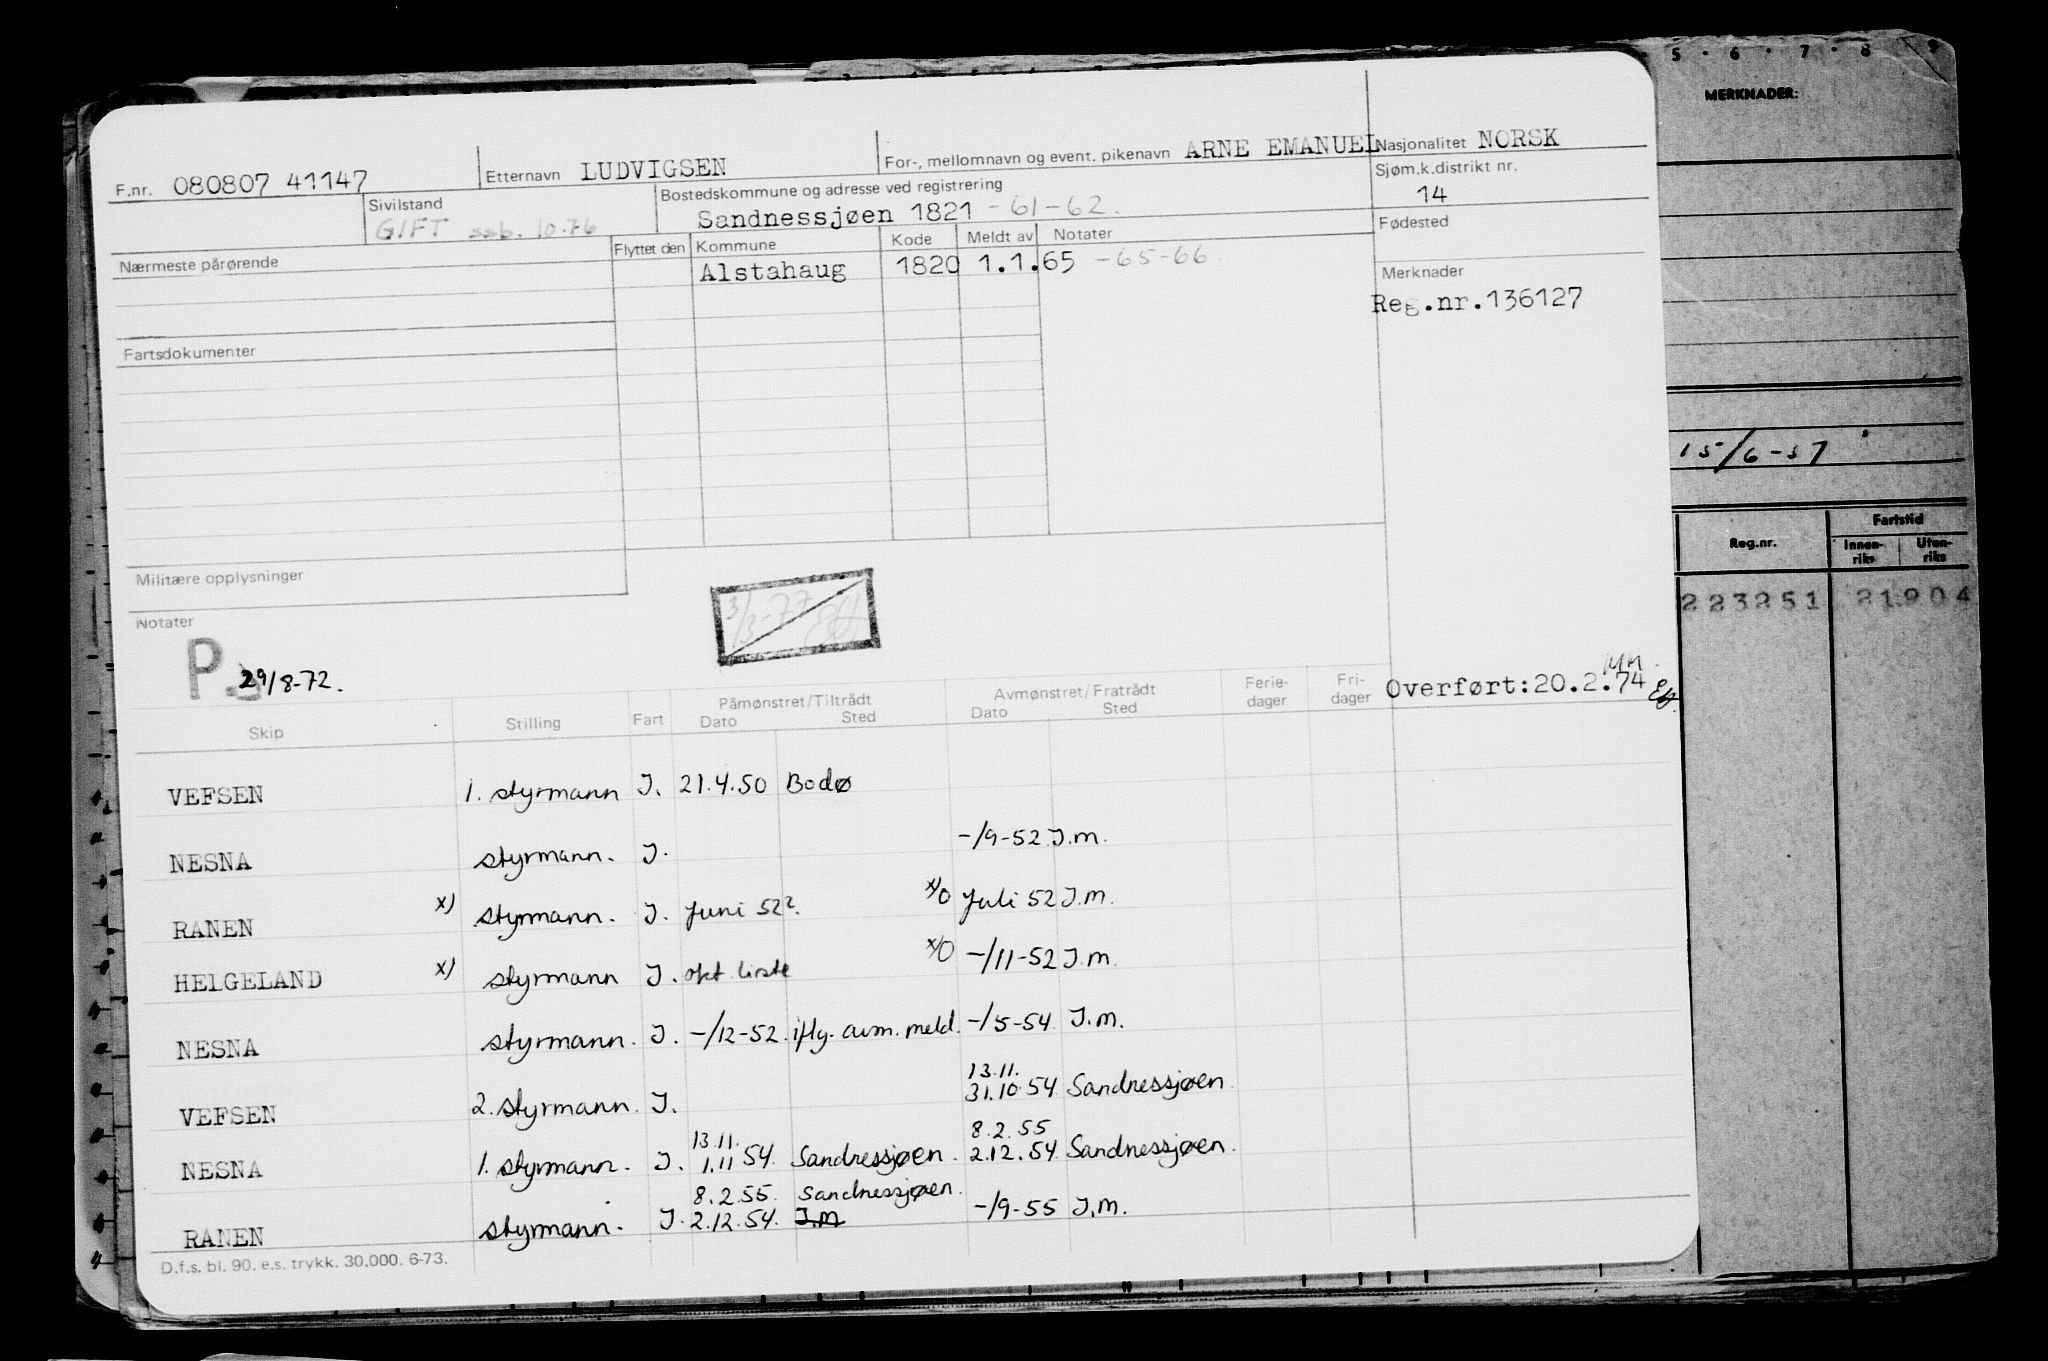 5 · 6 · 7 · 8 · 9
MERKNADER:
F.nr. 080807 41147 Etternavn LUDVIGSEN For-, mellomnavn og event. pikenavn ARNE EMANUEL Nasjonalitet NORSK
Sivilstand GIFT 10.76 Bostedskommune og adresse ved registrering Sandnessjøen 1821 -61-62. Sjøm.k.distrikt nr. 14
Nærmeste pårørende Flyttet den Kommune Kode Meldt av Notater Fødested
Alstahaug 1820 1.1.65 -65-66.
Merknader
Reg.nr.136127
Fartsdokumenter
15/6-57
Reg.nr. Fartstid
Innen-riks Uten-riks
223251 21904
Militære opplysninger
Notater
3/3-77
P. 29/8-72.
Overført:20.2.74
Skip Stilling Fart Påmønstret/Tiltrådt Dato Sted Avmønstret/Fratrådt Dato Sted Ferie-dager Fri-dager
VEFSEN 1. styrmann J. 21.4.50 Bodø
NESNA styrmann. J. -/9-52 J.m.
RANEN x) styrmann. J. Juni 52?. x)0 Juli 52 J.m.
HELGELAND x) styrmann J. okt. liste x)0 -/11-52 J.m.
NESNA styrmann. J. -/12-52. iflg. avm. meld. -/5-54 J.m.
VEFSEN 2. styrmann. J. 13.11. 31.10.54 Sandnessjøen.
NESNA 1. styrmann. J. 13.11. 1.11 54. Sandnessjøen. 8.2.55 2.12.54 Sandnessjøen.
RANEN styrmann. J. 8.2.55. Sandnessjøen. 2.12.54. J.m -/9-55 J.m.
D.f.s. bl. 90. e.s. trykk. 30.000. 6-73.